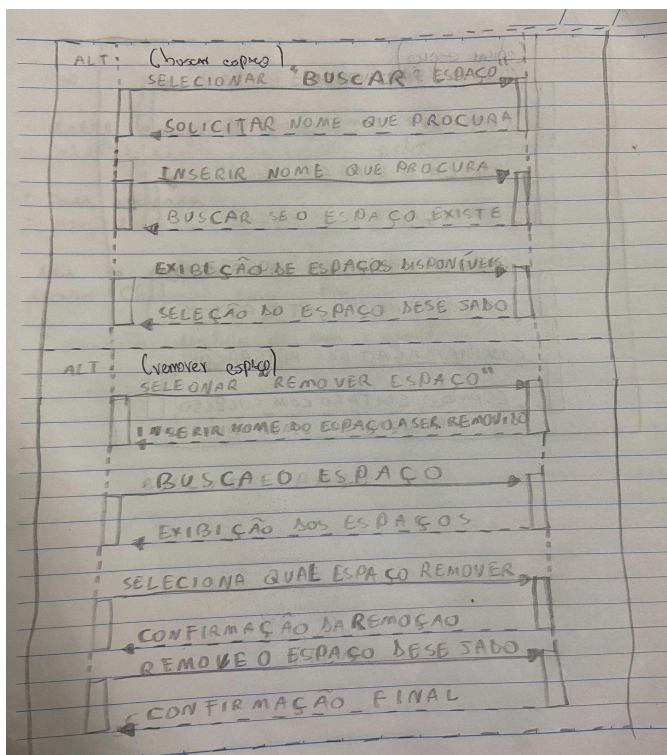 ALT: (buscar espaço)
SELECIONAR "BUSCAR ESPAÇO"
SOLICITAR NOME QUE PROCURA
INSERIR NOME QUE PROCURA
BUSCAR SE O ESPAÇO EXISTE
EXIBEÇÃO DE ESPAÇOS DISPONÍVEIS
SELEÇÃO DO ESPAÇO DESEJADO
ALT: (remover espaço)
SELEONAR "REMOVER ESPAÇO"
INSERIR NOME DO ESPAÇO A SER REMOVIDO
BUSCA O ESPAÇO
EXIBIÇÃO DOS ESPAÇOS
SELECIONA QUAL ESPAÇO REMOVER
CONFIRMAÇÃO DA REMOÇÃO
REMOVE O ESPAÇO DESEJADO
CONFIRMAÇÃO FINAL